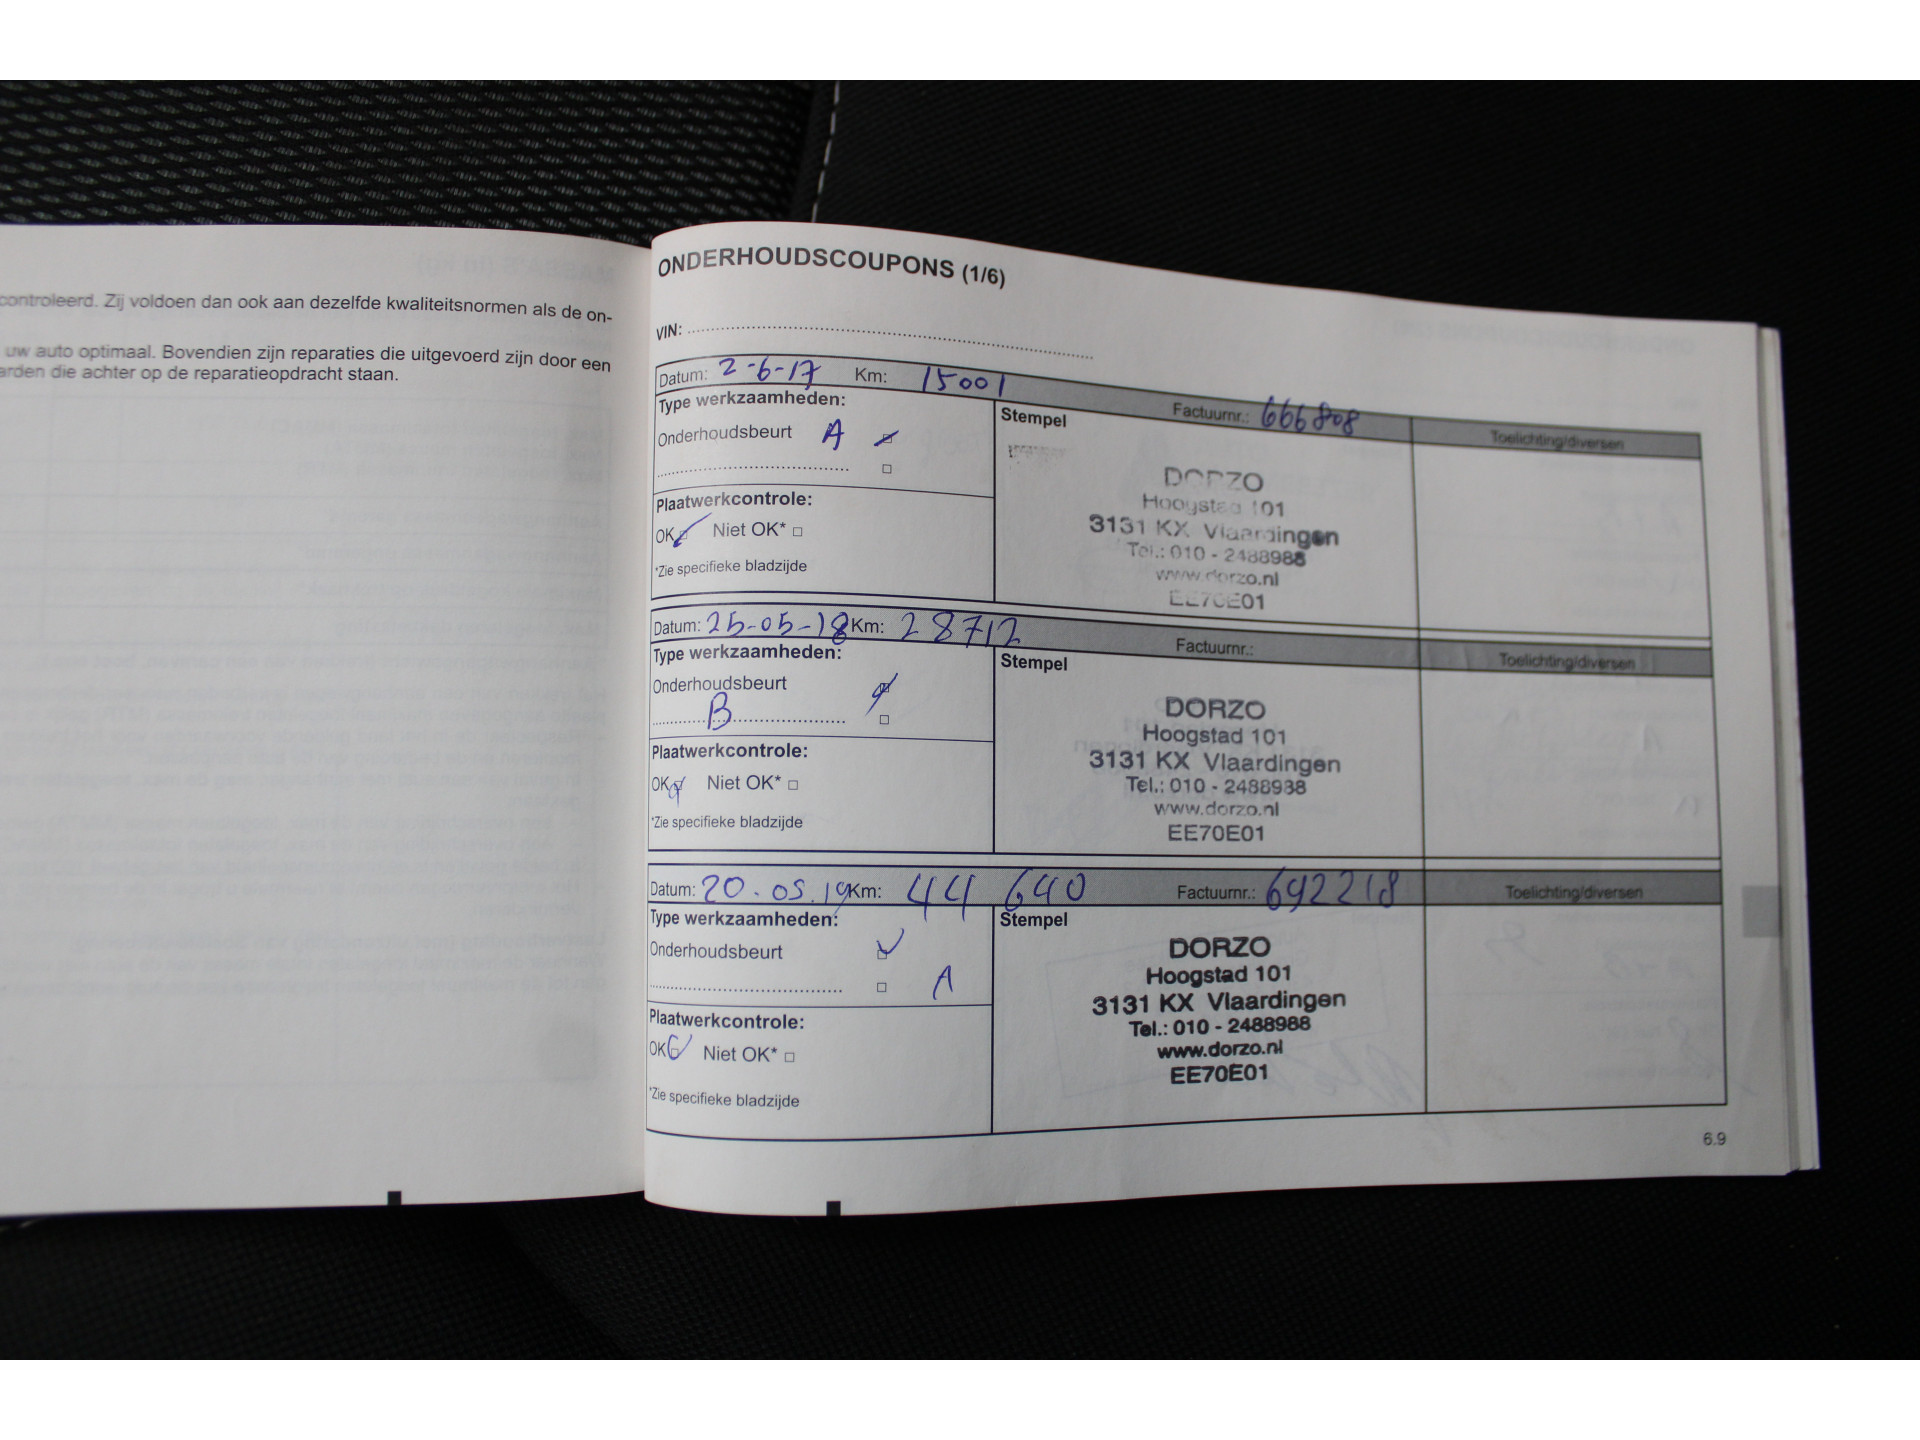 controleerd. Zij voldoen dan ook aan dezelfde kwaliteitsnormen als de on-
uw auto optimaal. Bovendien zijn reparaties die uitgevoerd zijn door een
arden die achter op de reparatieopdracht staan.
ONDERHOUDSCOUPONS (1/6)
VIN:
Datum: 2-6-17 Km: 15001 Factuurnr.: 666808 Toelichting/diversen
Type werkzaamheden:
Stempel
Onderhoudsbeurt A
Plaatwerkcontrole:
OK Niet OK*
*Zie specifieke bladzijde
DORZO
Hoogstad 101
3131 KX Vlaardingen
Tel.: 010 - 2488988
www.dorzo.nl
EE70E01
Datum: 25-05-18 Km: 28712 Factuurnr.: Toelichting/diversen
Type werkzaamheden:
Stempel
Onderhoudsbeurt
B
Plaatwerkcontrole:
OK Niet OK*
*Zie specifieke bladzijde
DORZO
Hoogstad 101
3131 KX Vlaardingen
Tel.: 010 - 2488988
www.dorzo.nl
EE70E01
Datum: 20.05.19 Km: 44 640 Factuurnr.: 692218 Toelichting/diversen
Type werkzaamheden:
Stempel
Onderhoudsbeurt
A
Plaatwerkcontrole:
OK Niet OK*
*Zie specifieke bladzijde
DORZO
Hoogstad 101
3131 KX Vlaardingen
Tel.: 010 - 2488988
www.dorzo.nl
EE70E01
6.9